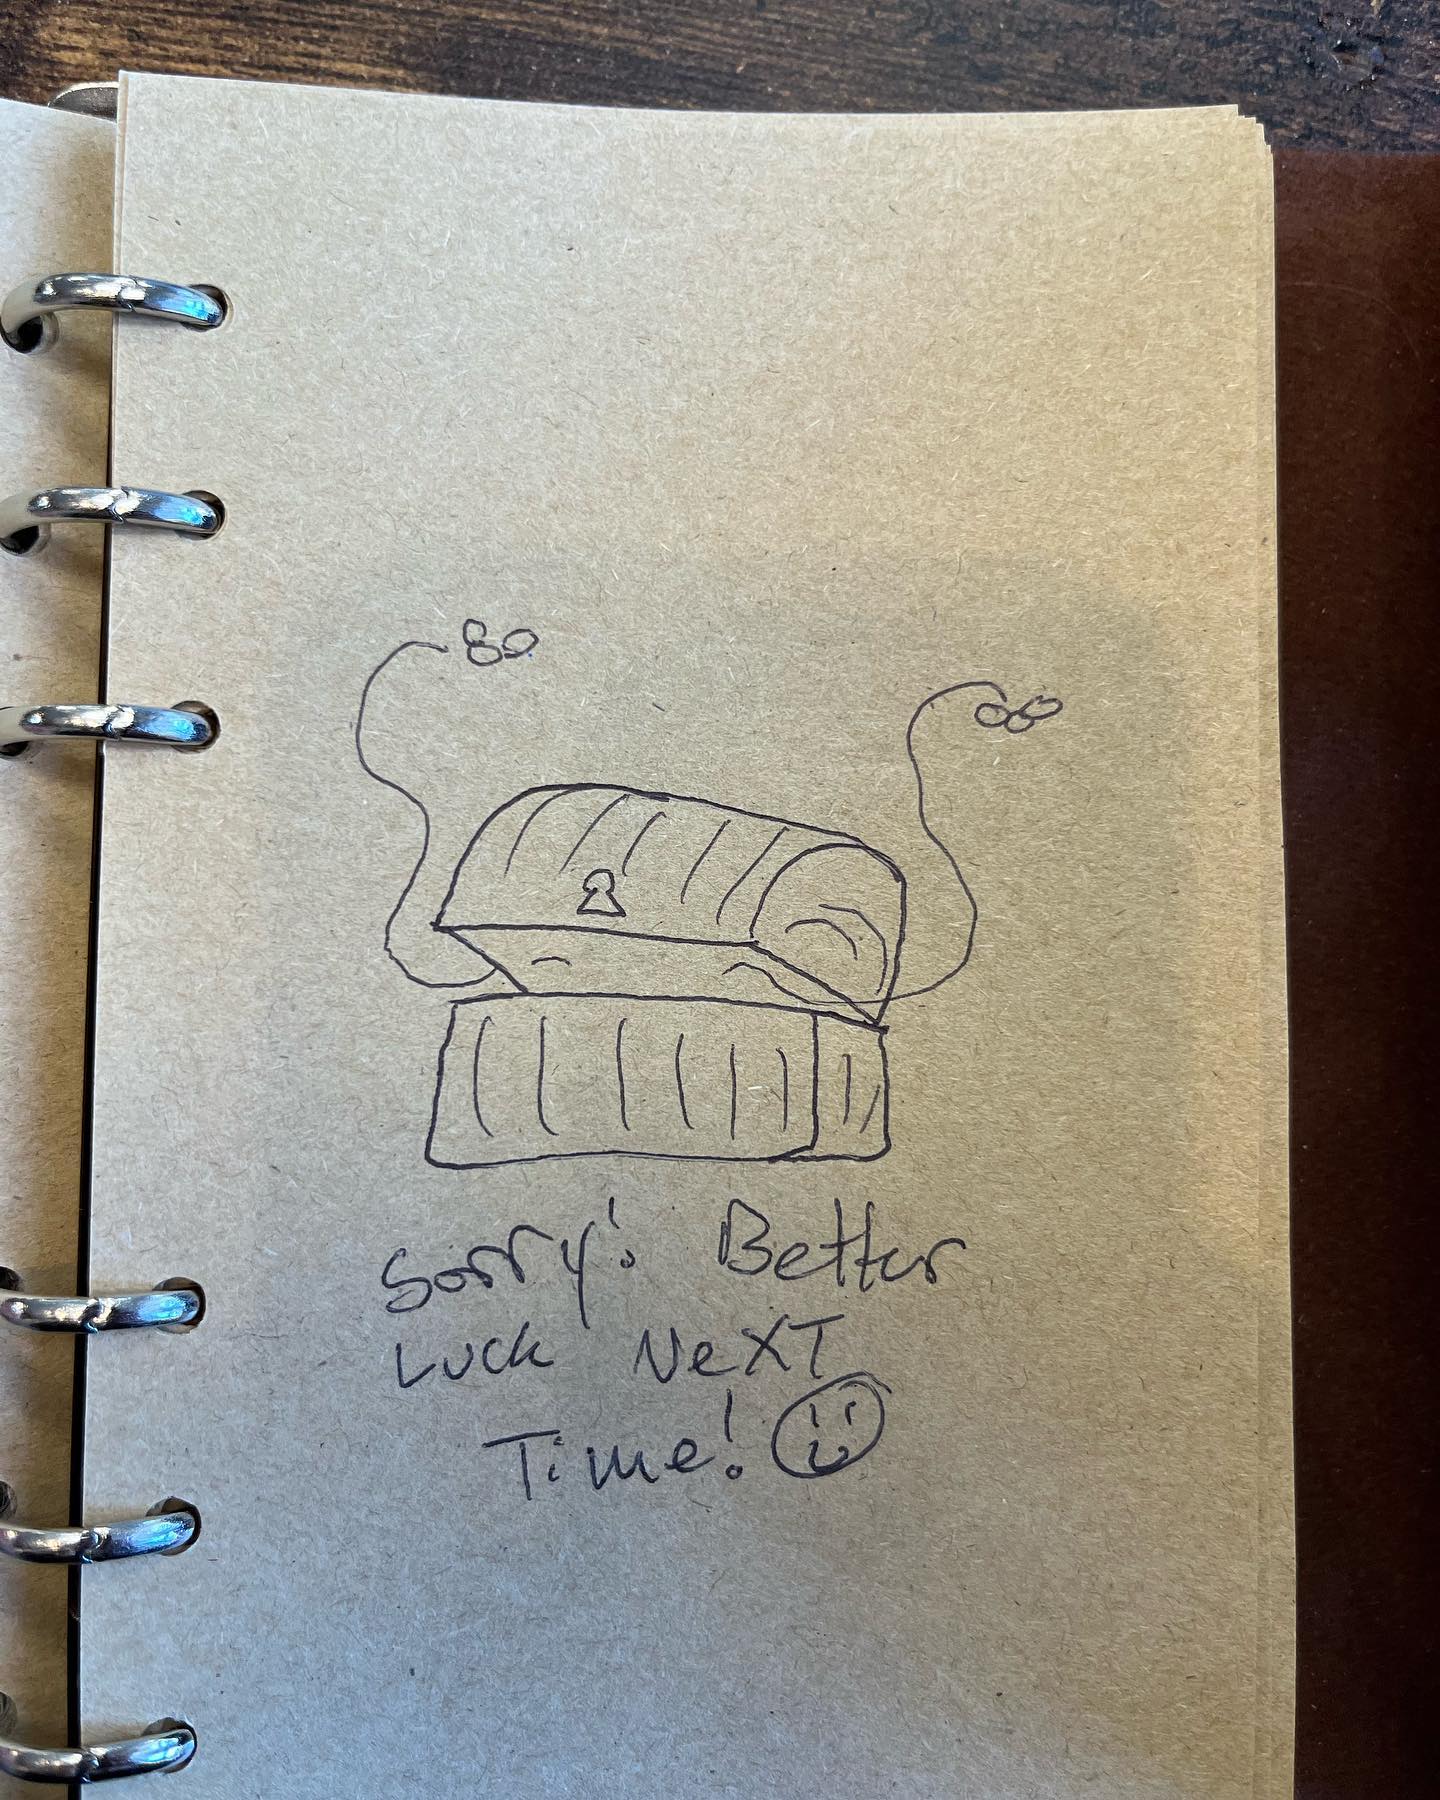 Sorry! Better
Luck NeXT
Time!